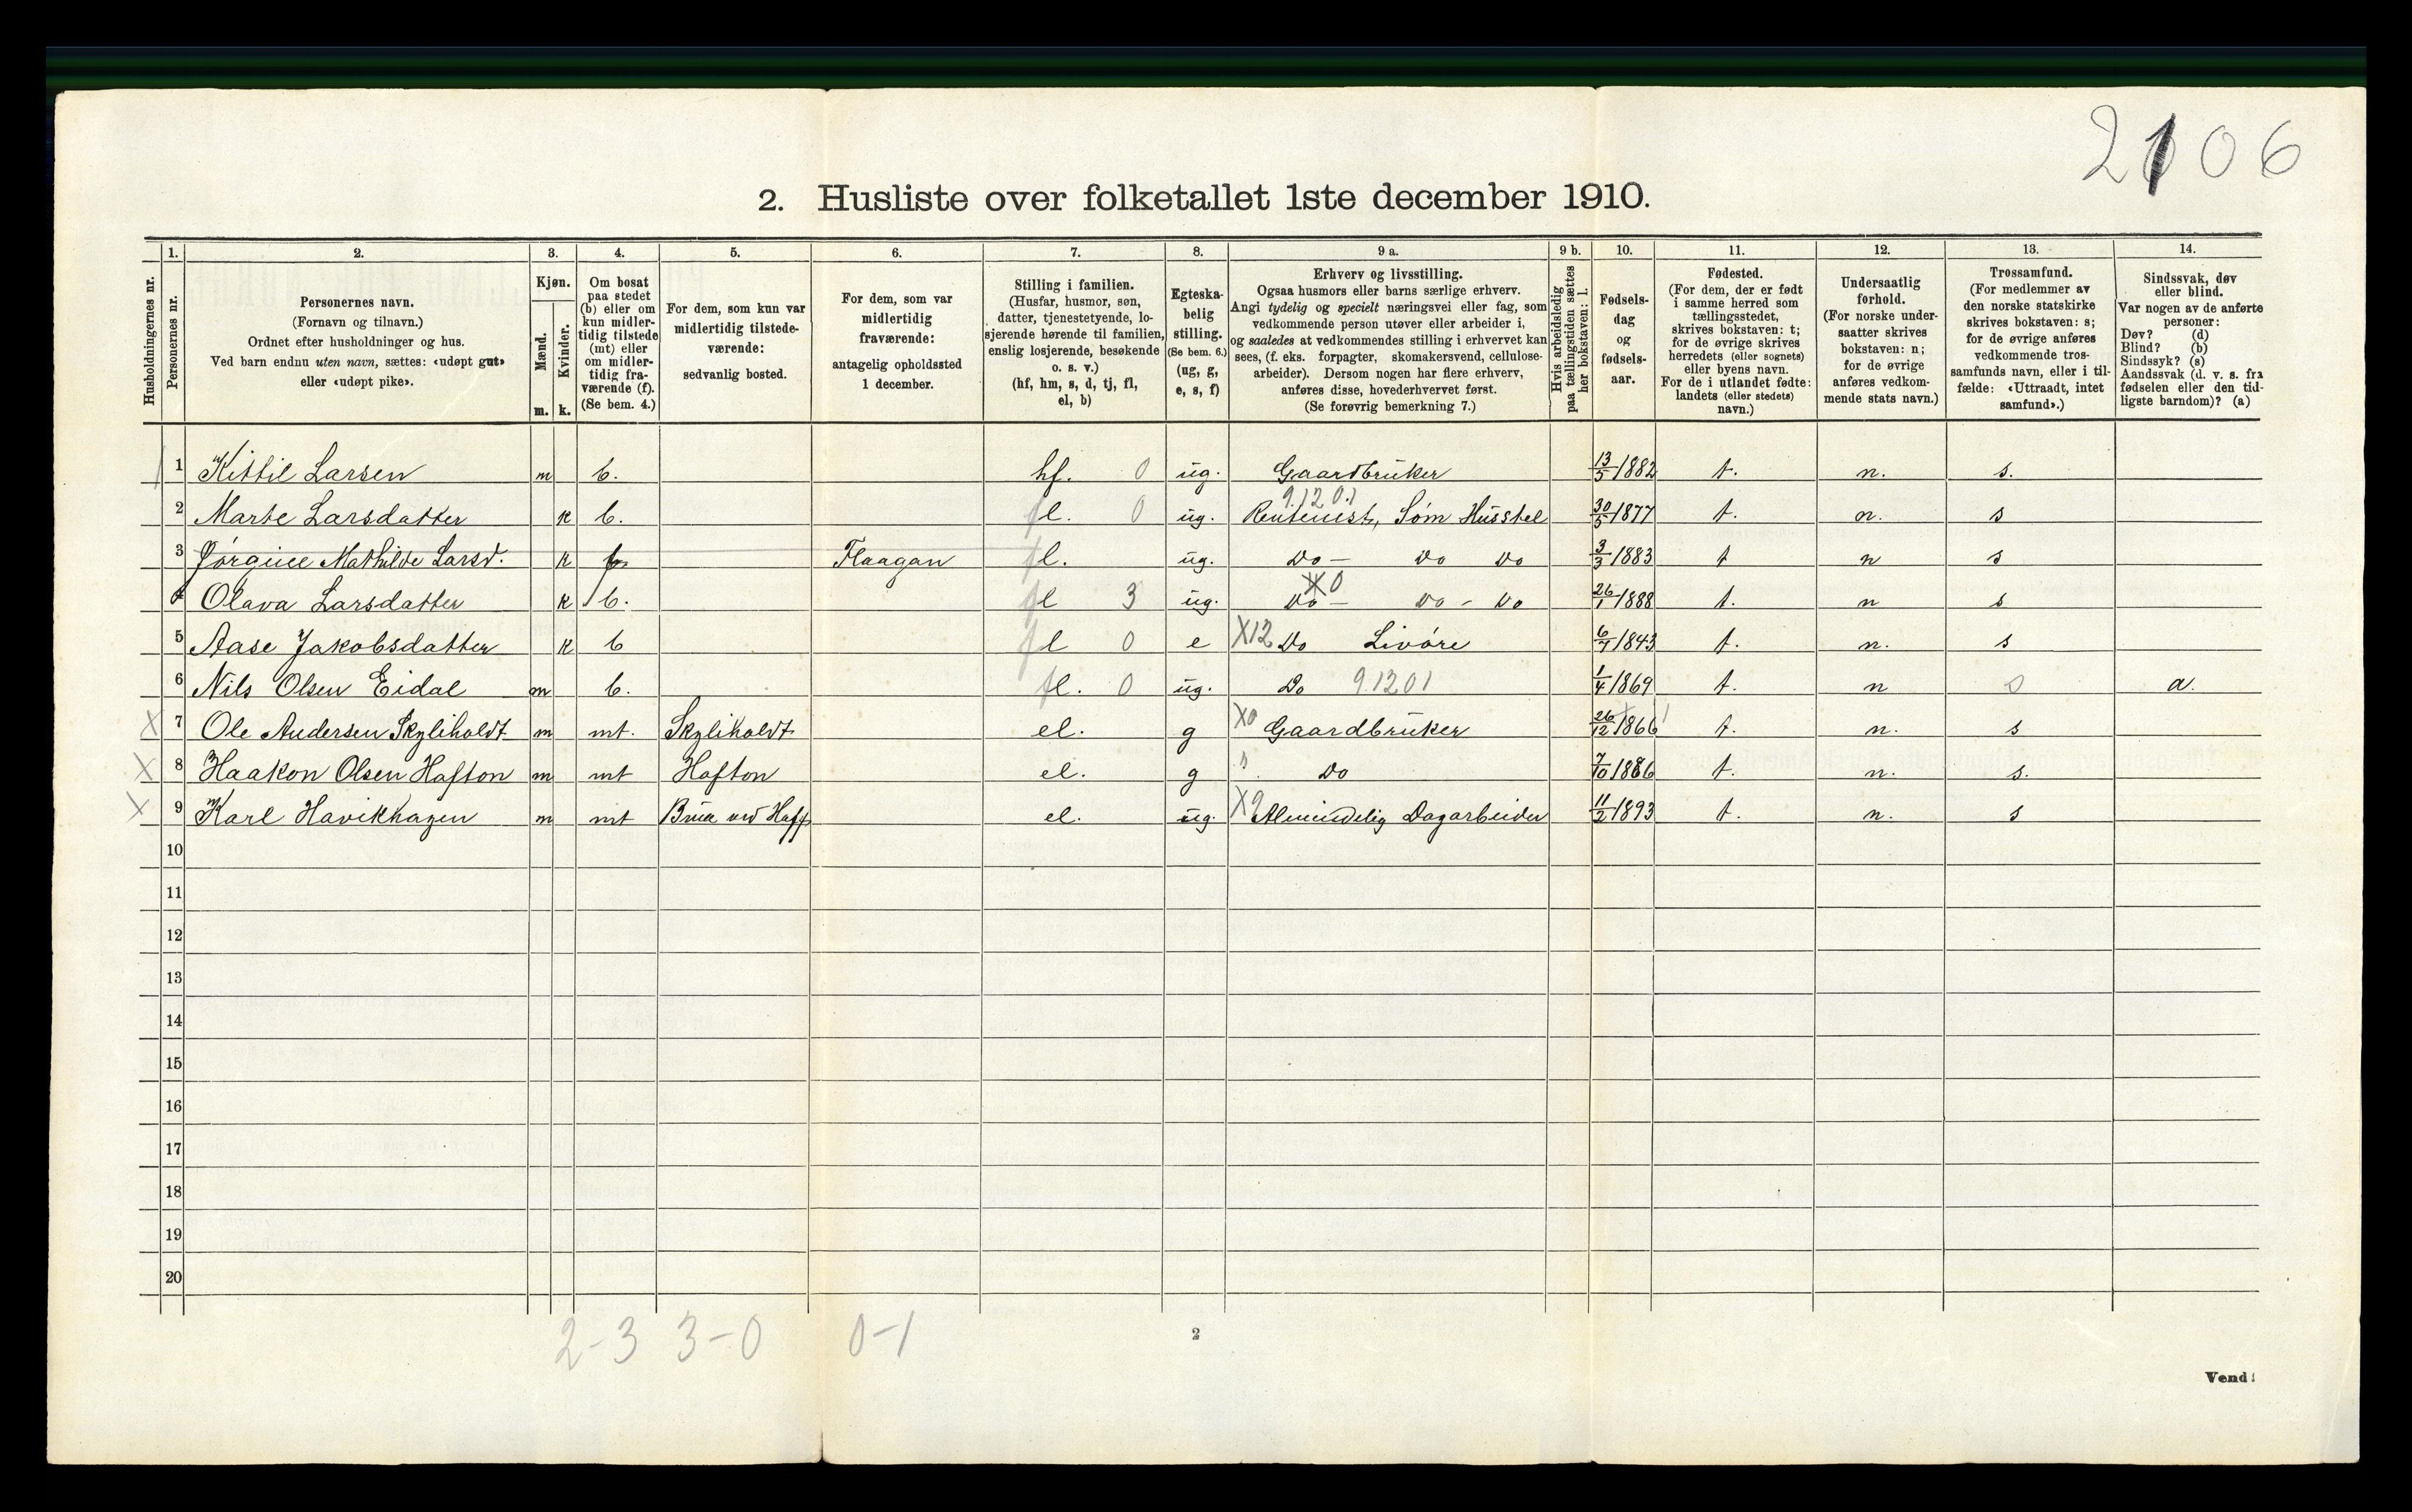 2106
2. Husliste over folketallet 1ste december 1910.
Husholdningernes nr.
1.
Personernes nr.
2.
Personernes navn.
(Fornavn og tilnavn.)
Ordnet efter husholdninger og hus.
Ved barn endnu uten navn, sættes: «udøpt gut»
eller «udøpt pike».
3.
Kjøn.
Mænd.
Kvinder.
m. k.
4.
Om bosat
paa stedet
(b) eller om
kun midler-
tidig tilstede
(mt) eller
om midler-
tidig fra-
værende (f).
(Se bem. 4.)
5.
For dem, som kun var
midlertidig tilstede-
værende:
sedvanlig bosted.
6.
For dem, som var
midlertidig
fraværende:
antagelig opholdssted
1 december.
7.
Stilling i familien.
(Husfar, husmor, søn,
datter, tjenestetyende, lo-
sjerende hørende til familien,
enslig losjerende, besøkende
o. s. v.)
(hf, hm, s, d, tj, fl,
el, b)
8.
Egteska-
belig
stilling.
(Se bem. 6.)
(ug, g,
e, s, f)
9 a.
Erhverv og livsstilling.
Ogsaa husmors eller barns særlige erhverv.
Angi tydelig og specielt næringsvei eller fag, som
vedkommende person utøver eller arbeider i,
og saaledes at vedkommendes stilling i erhvervet kan
sees, (f. eks. forpagter, skomakersvend, cellulose-
arbeider). Dersom nogen har flere erhverv,
anføres disse, hovederhvervet først.
(Se forøvrig bemerkning 7.)
9 b.
Hvis arbeidsledig
paa tællingstiden sættes
her bokstaven: l.
10.
Fødsels-
dag
og
fødsels-
aar.
11.
Fødested.
(For dem, der er født
i samme herred som
tællingsstedet,
skrives bokstaven: t;
for de øvrige skrives
herredets (eller sognets)
eller byens navn.
For de i utlandet fødte:
landets (eller stedets)
navn.)
12.
Undersaatlig
forhold.
(For norske under-
saatter skrives
bokstaven: n;
for de øvrige
anføres vedkom-
mende stats navn.)
13.
Trossamfund.
(For medlemmer av
den norske statskirke
skrives bokstaven: s;
for de øvrige anføres
vedkommende tros-
samfunds navn, eller i til-
fælde: «Uttraadt, intet
samfund».)
14.
Sindssvak, døv
eller blind.
Var nogen av de anførte
personer:
Døv? (d)
Blind? (b)
Sindssyk? (s)
Aandssvak (d. v. s. fra
fødselen eller den tid-
ligste barndom)? (a)
1 Kittil Larsen m b. hf. 0 ug. Gaardbruker 13/5 1882 t. n. s.
9.12 01
2 Marte Larsdatter k b. fl. 0 ug. Rentenist, Søm Husstel 30/5 1877 t. n. s
3 Jørgine Mathilde Larsd. k f. Flaagan fl. ug. Do - Do Do 3/3 1883 t n s
X0
4 Olava Larsdatter k b. fl 3 ug. Do - Do - Do 26/1 1888 t. n s
5 Aase Jakobsdatter k b fl 0 e X12 Do Livøre 6/7 1843 t. n. s
6 Nils Olsen Eidal m b. fl. 0 ug. Do 9.12 01 1/4 1869 t. n s a.
X 7 Ole Andersen Skyliholdt m mt. Skyliholdt el. g X0 Gaardbruker 26/12 1866 t. n. s
X 8 Haakon Olsen Hafton m mt Hafton el. g Do 7/10 1886 t. n. s.
X 9 Karl Havikhagen m mt Brua ved Haff el. ug. X9 Almindelig Dagarbeider 11/2 1893 t. n. s
10
11
12
13
14
15
16
17
18
19
20
2-3 3-0 0-1
2
Vend!